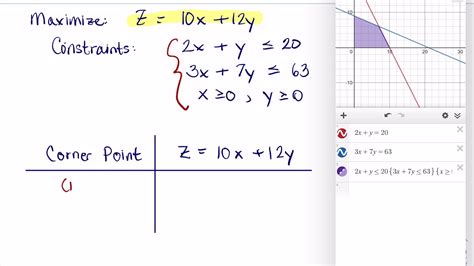 Maximize: Z = 10x + 12y
Constraints: 2x + y ≤ 20
3x + 7y ≤ 63
x ≥ 0, y ≥ 0
Corner Point Z = 10x + 12y
(
10
0 10 20 30
-10
2x + y = 20
3x + 7y = 63
2x + y ≤ 20 {3x + 7y ≤ 63} {x ≥